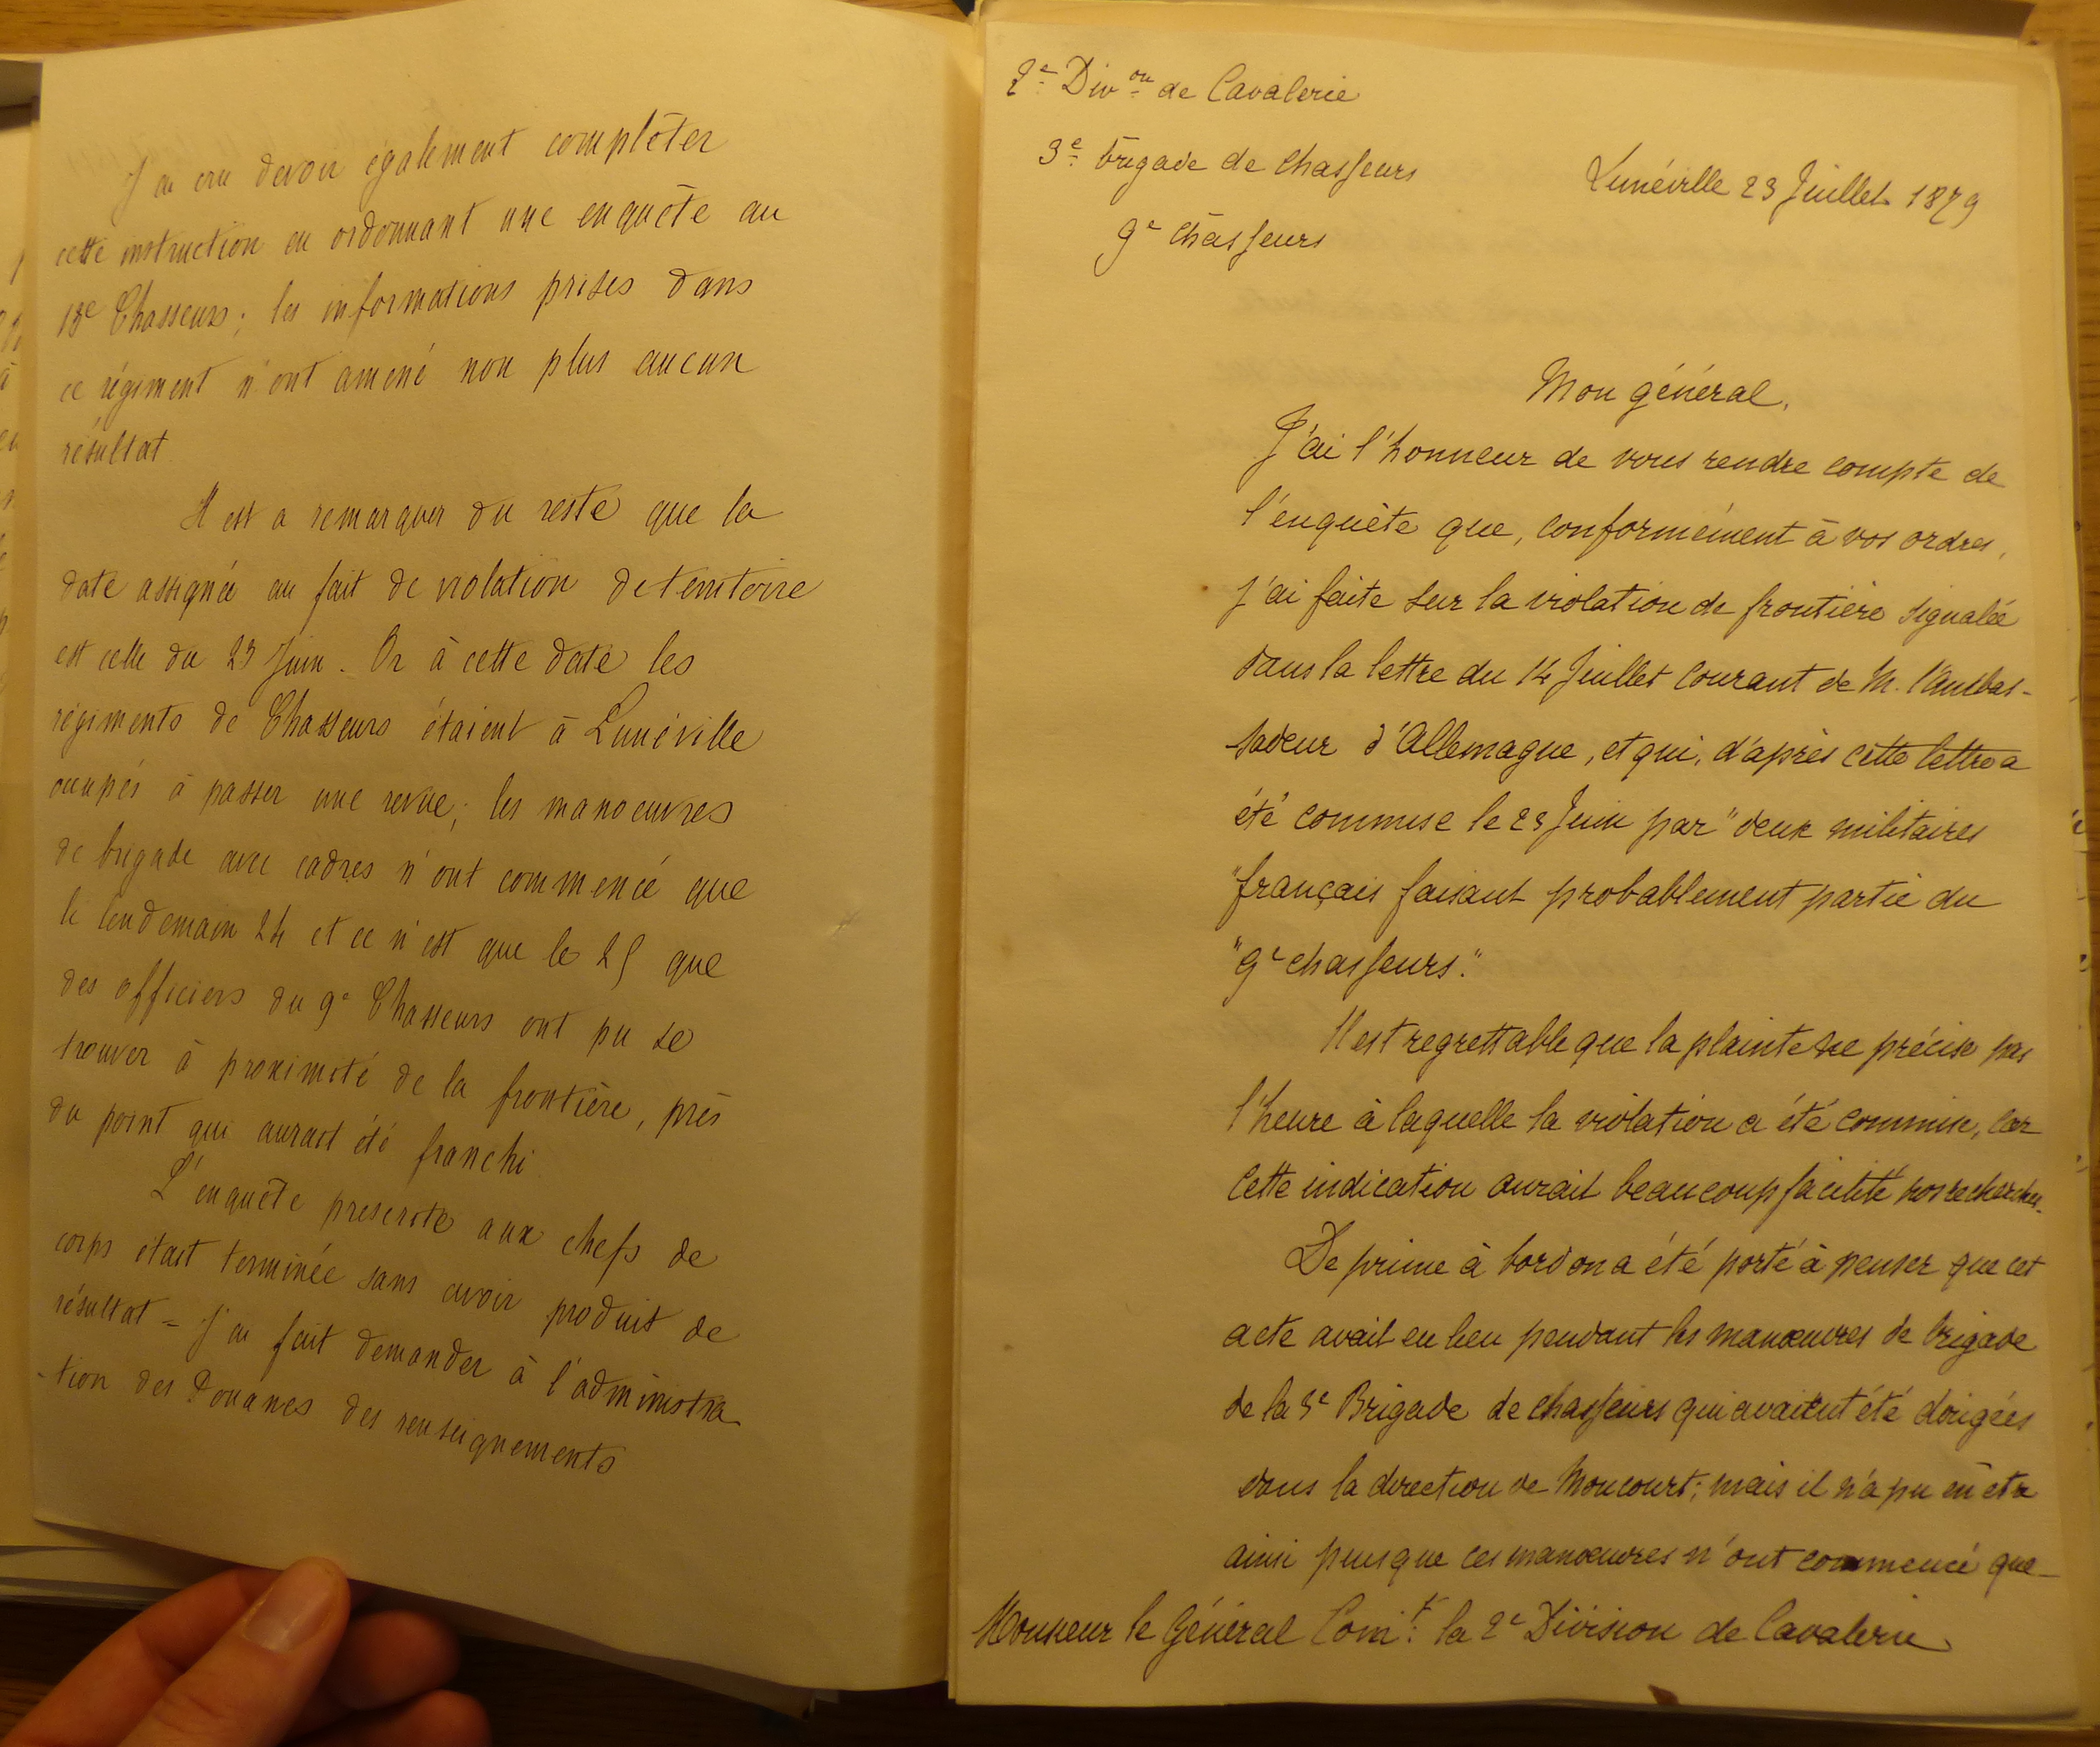 J'ai cru devoir également complèter
cette instruction en ordonnant une enquète au
18e Chasseurs; les informations prises dans
ce régiment n'ont amené non plus aucun
résultat.
Il est a remarquer du reste que la
date assignée au fait de violation de territoire
est celle du 23 Juin. Or à cette date les
régiments de Chasseurs étaient à Lunéville
occupés à passer une revue; les manoeuvres
de brigade avec cadres n'ont commencé que
le lendemain 24 et ce n'est que le 25 que
des officiers du 9e Chasseurs ont pu se
trouver à proximité de la frontière, près
du point qui aurait été franchi.
L'enquête prescrite aux chefs de
corps était terminée sans avoir produit de
résultat = J'ai fait demander à l'administra
-tion des Douanes des renseignements
2e Divon de Cavalerie
3e brigade de Chasseurs
9e Chasseurs
Lunéville 23 Juillet 1879
Mon général,
J'ai l'honneur de vous rendre compte de
l'enquète que, conformément à vos ordres,
j'ai faite sur la violation de frontière signalée
dans la lettre du 14 Juillet courant de M. l'ambas-
sadeur d'Allemagne, et qui, d'après cette lettre a
été commise le 23 Juin par "deux militaires
"français faisant probablement partie du
"9e chasseurs."
Il est regrettable que la plainte ne précise pas
l'heure à laquelle la violation a été commise, car
cette indication aurait beaucoup facilité nos recherches.
De prime à bord on a été porté à penser que cet
acte avait eu lieu pendant les manœuvres de brigade
de la 3e Brigade de chasseurs qui avaient été dirigées
dans la direction de Moncourt; mais il n'a pu en être
ainsi puisque ces manœuvres n'ont commencé que
Monsieur le Général Comt la 2e Division de Cavalerie